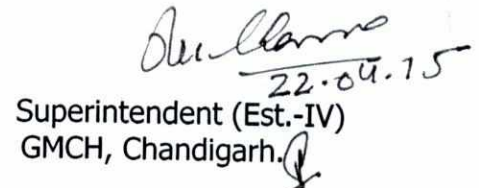 22.04.15
Superintendent (Est.-IV)
GMCH, Chandigarh.